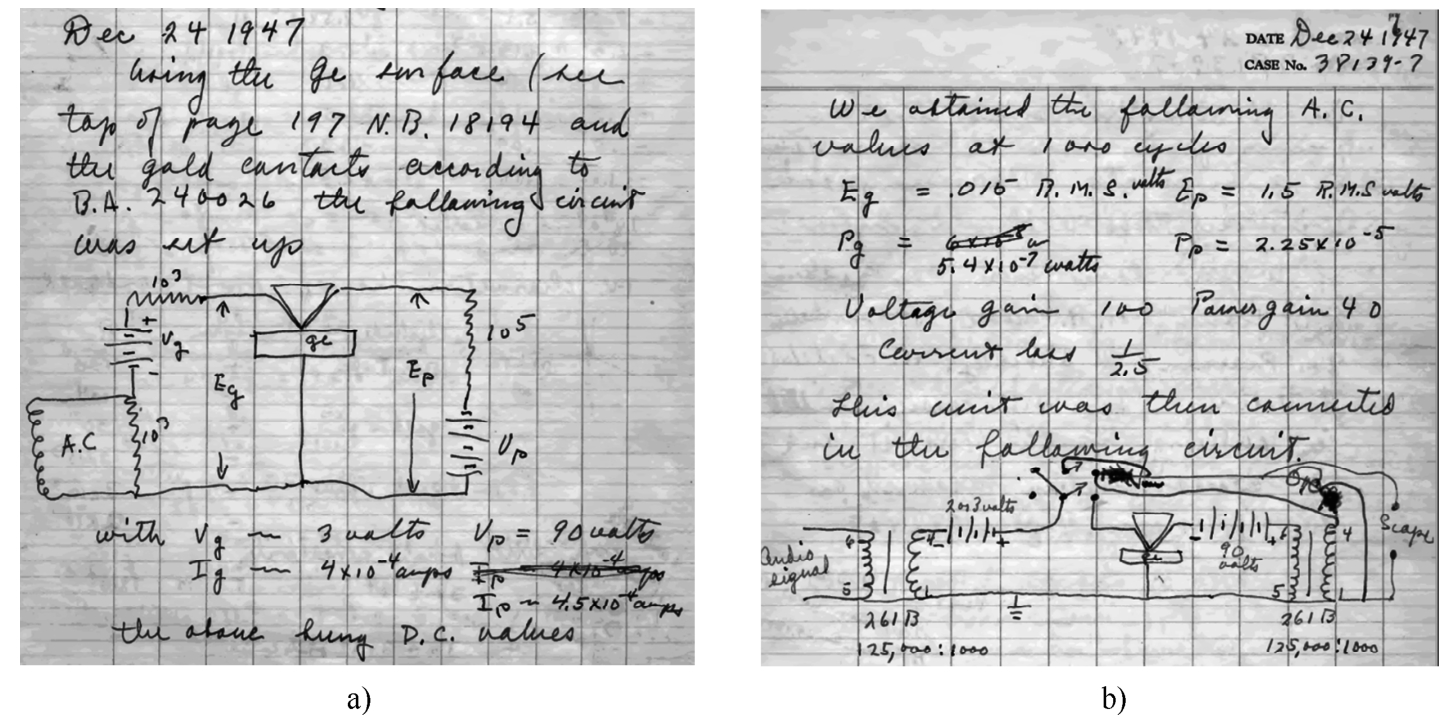 Dec 24 1947
Using the Ge surface (see
top of page 197 N.B. 18194 and
the gold contacts according to
B.A. 240026 the following circuit
was set up
10³
+
Vg
-
Eg
ge
Ep
10⁵
A.C
10³
Vp
with Vg ~ 3 volts Vp = 90 volts
Ig ~ 4x10⁻⁴ amps Ip ~ 4x10⁻⁴ amps
Ip ~ 4.5x10⁻⁴ amps
the above being D.C. values
a)
7
DATE Dec 24 1947
CASE No. 38139-7
We obtained the following A.C.
values at 1000 cycles
Eg = .015 R.M.S. volts Ep = 1.5 R.M.S volts
Pg = Pp = 2.25x10⁻⁵
5.4x10⁻⁷ watts
Voltage gain 100 Power gain 40
Current loss 1/2.5
This unit was then connected
in the following circuit.
2 or 3 volts
Scope
audio
signal
6 4 - + - + 6 4
90
volts
5 1 5 1
261B 261B
125,000:1000 125,000:1000
b)